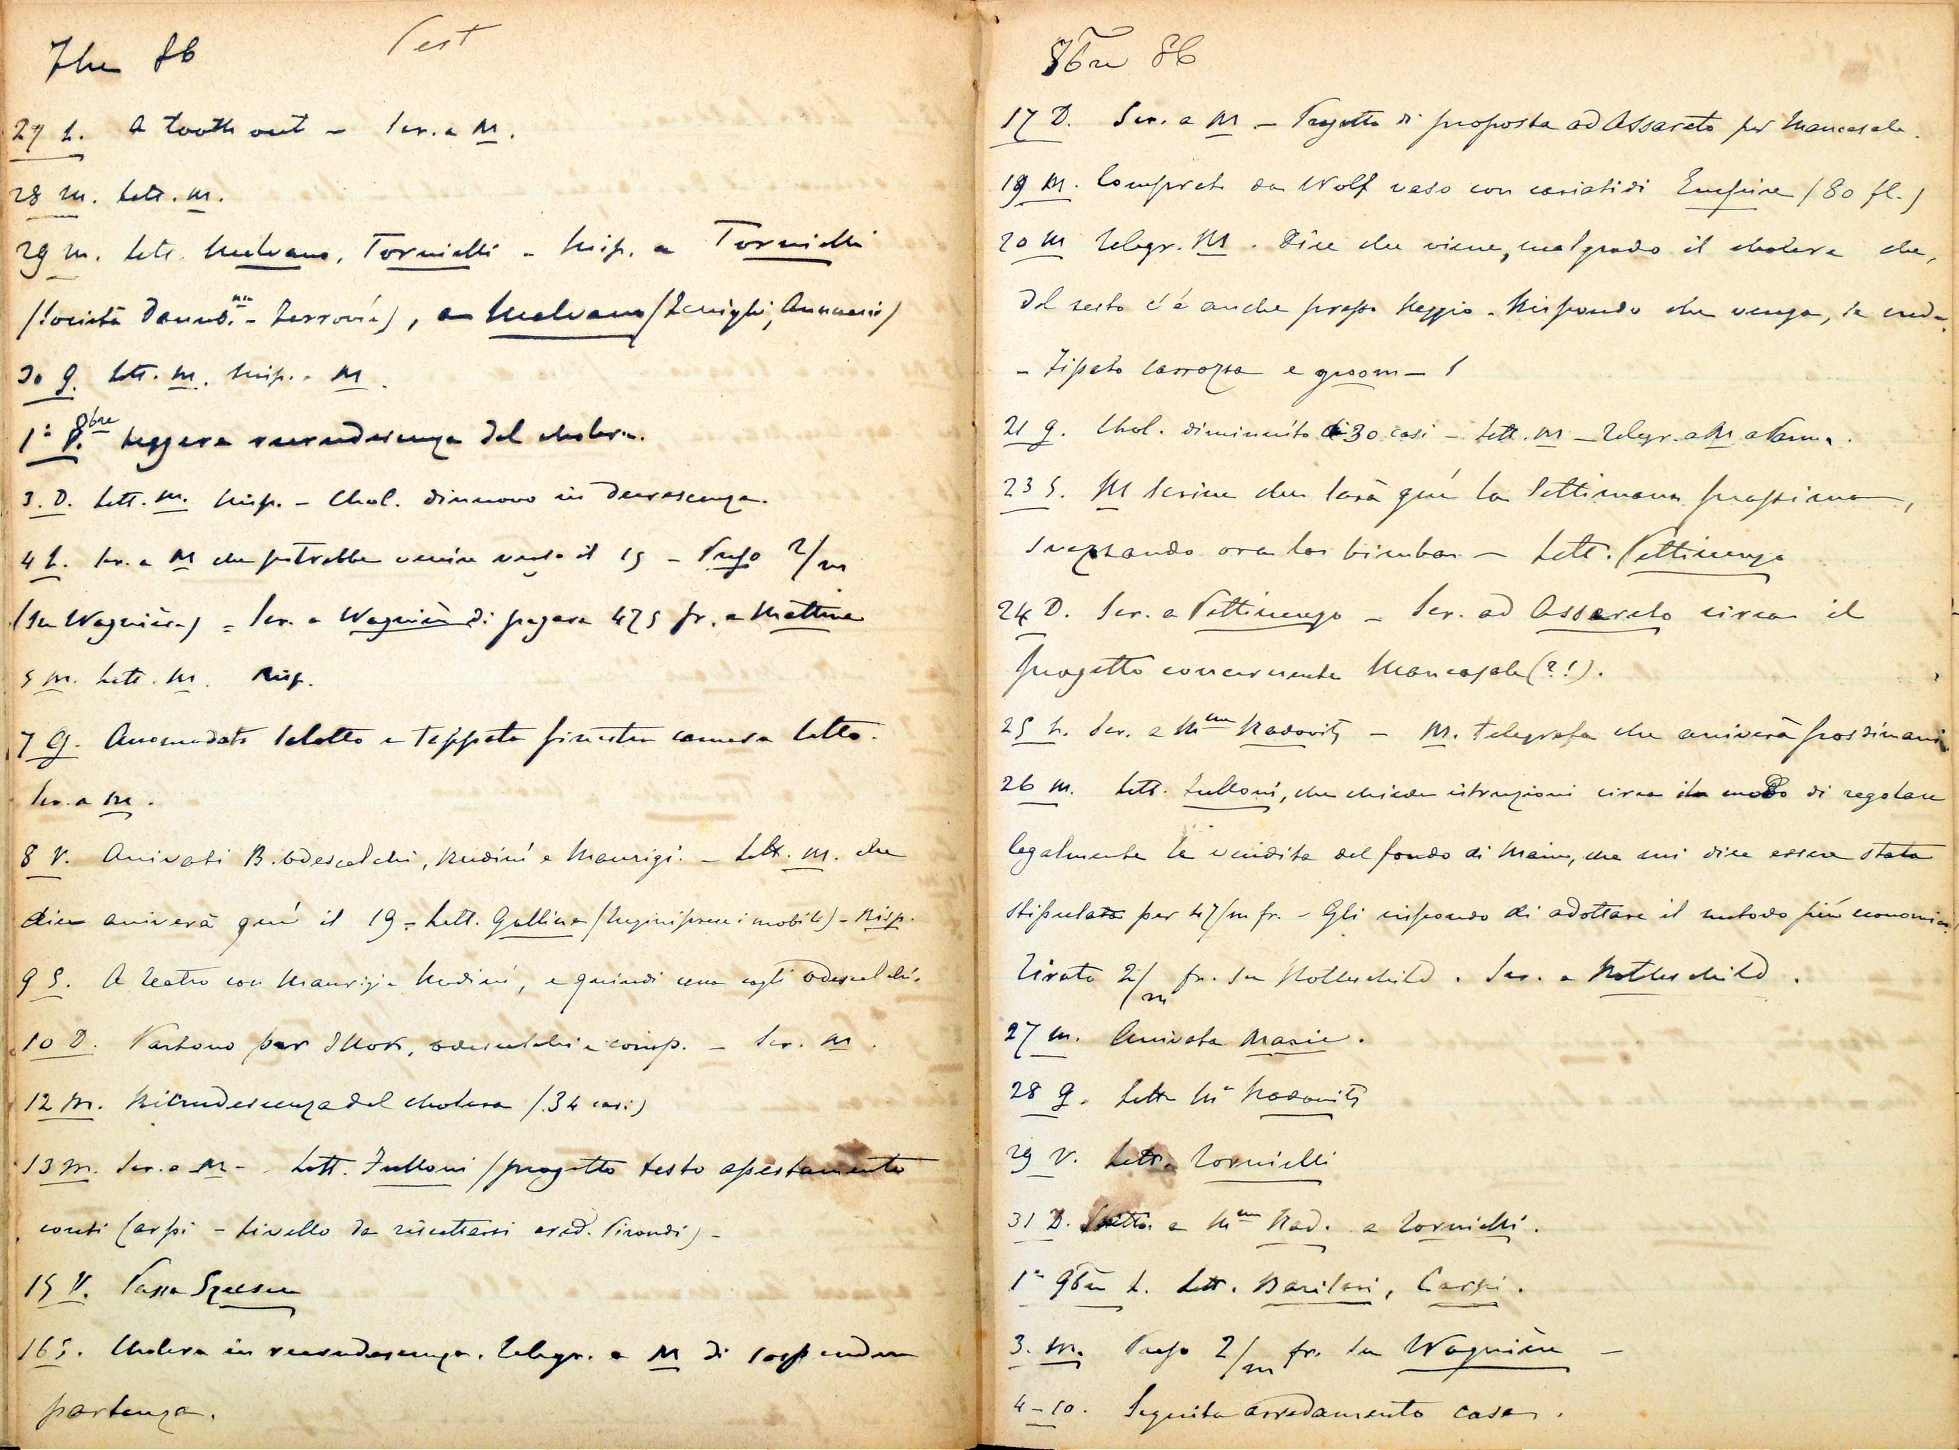 7bre 86 Pest
27 L. A tooth out – Scr. a M.
28 M. Lett. M.
29 M. Lett. Malvano, Tornielli – Risp. a Tornielli
(Società Danub.), a Malvano
30 G. Lett. M. Risp. a M.
1º 8bre V. Leggera recrudescenza del cholera.
3. D. Lett. M. Risp. – Chol. dinuovo in decrescenza.
4 L. Scr. a M che potrebbe venire verso il 15 – Preso 2/m
(su Wagnière) – Scr. a Wagnière di pagare 475 fr. a
5 M. Lett. M. Risp.
7 G. Accomodato salotto e tappeto finestra camera letto.
Scr. a M.
8 V. Arrivati B. Odescalchi, Rudinì e Maurigi. – Lett. M. che
dice arriverà quì il 19 – Lett. Gallina – Risp.
9 S. A teatro con Maurigi e Rudinì, e quindi cena cogli Odescalchi.
10 D. Partono per Odescalchi e comp. – Scr. M.
12 M. Ricrudescenza del cholera (34 casi)
13 M. Scr. a M – Lett. Fulloni (progetto testo
conti Carpi – livello da riscattarsi ered. Pirondi) –
15 V. Passa
16 S. Cholera in recrudescenza. Telegr. a M di sospendere
partenza.
8bre 86
17 D. Scr. a M – Progetto di proposta ad Assareto per Mancasale.
19 M. Comprato da Wolf vaso con cariatidi Empire (80 fl.)
20 M Telegr. M. Dice che viene, malgrado il cholera che,
del resto c'è anche presso Reggio. Rispondo che venga, se crede.
– Fissato carrozza e groom –
21 G. Chol. diminuito a 30 casi – Lett. M – Telegr. a M a Parma.
23 S. M scrive che sarà quì la settimana prossima,
svezzando ora la bimba – Lett. Pettinengo
24 D. Scr. a Pettinengo – Scr. ad Assareto circa il
progetto concernente Mancasale (?!).
25 L. Scr. a Mme Radovitz – M. telegrafa che arriverà posdimani
26 M. Lett. Fulloni, che chiede istruzioni circa il modo di regolare
legalmente la vendita del fondo di che mi dice essere stata
stipulata per 47/m fr. – Gli rispondo di adottare il metodo più economico.
Tirato 2/m fr. su Rothschild. Scr. a Rothschild.
27 M. Arrivata Marie.
28 G. Lett. Radovitz
29 V. Lett. Tornielli
31 D. a Mme Rad. e Tornielli.
1º 9bre L. Lett. Barilari, Carpi.
3. M. Preso 2/m fr. su Wagnière –
4–10. Seguita arredamento casa.